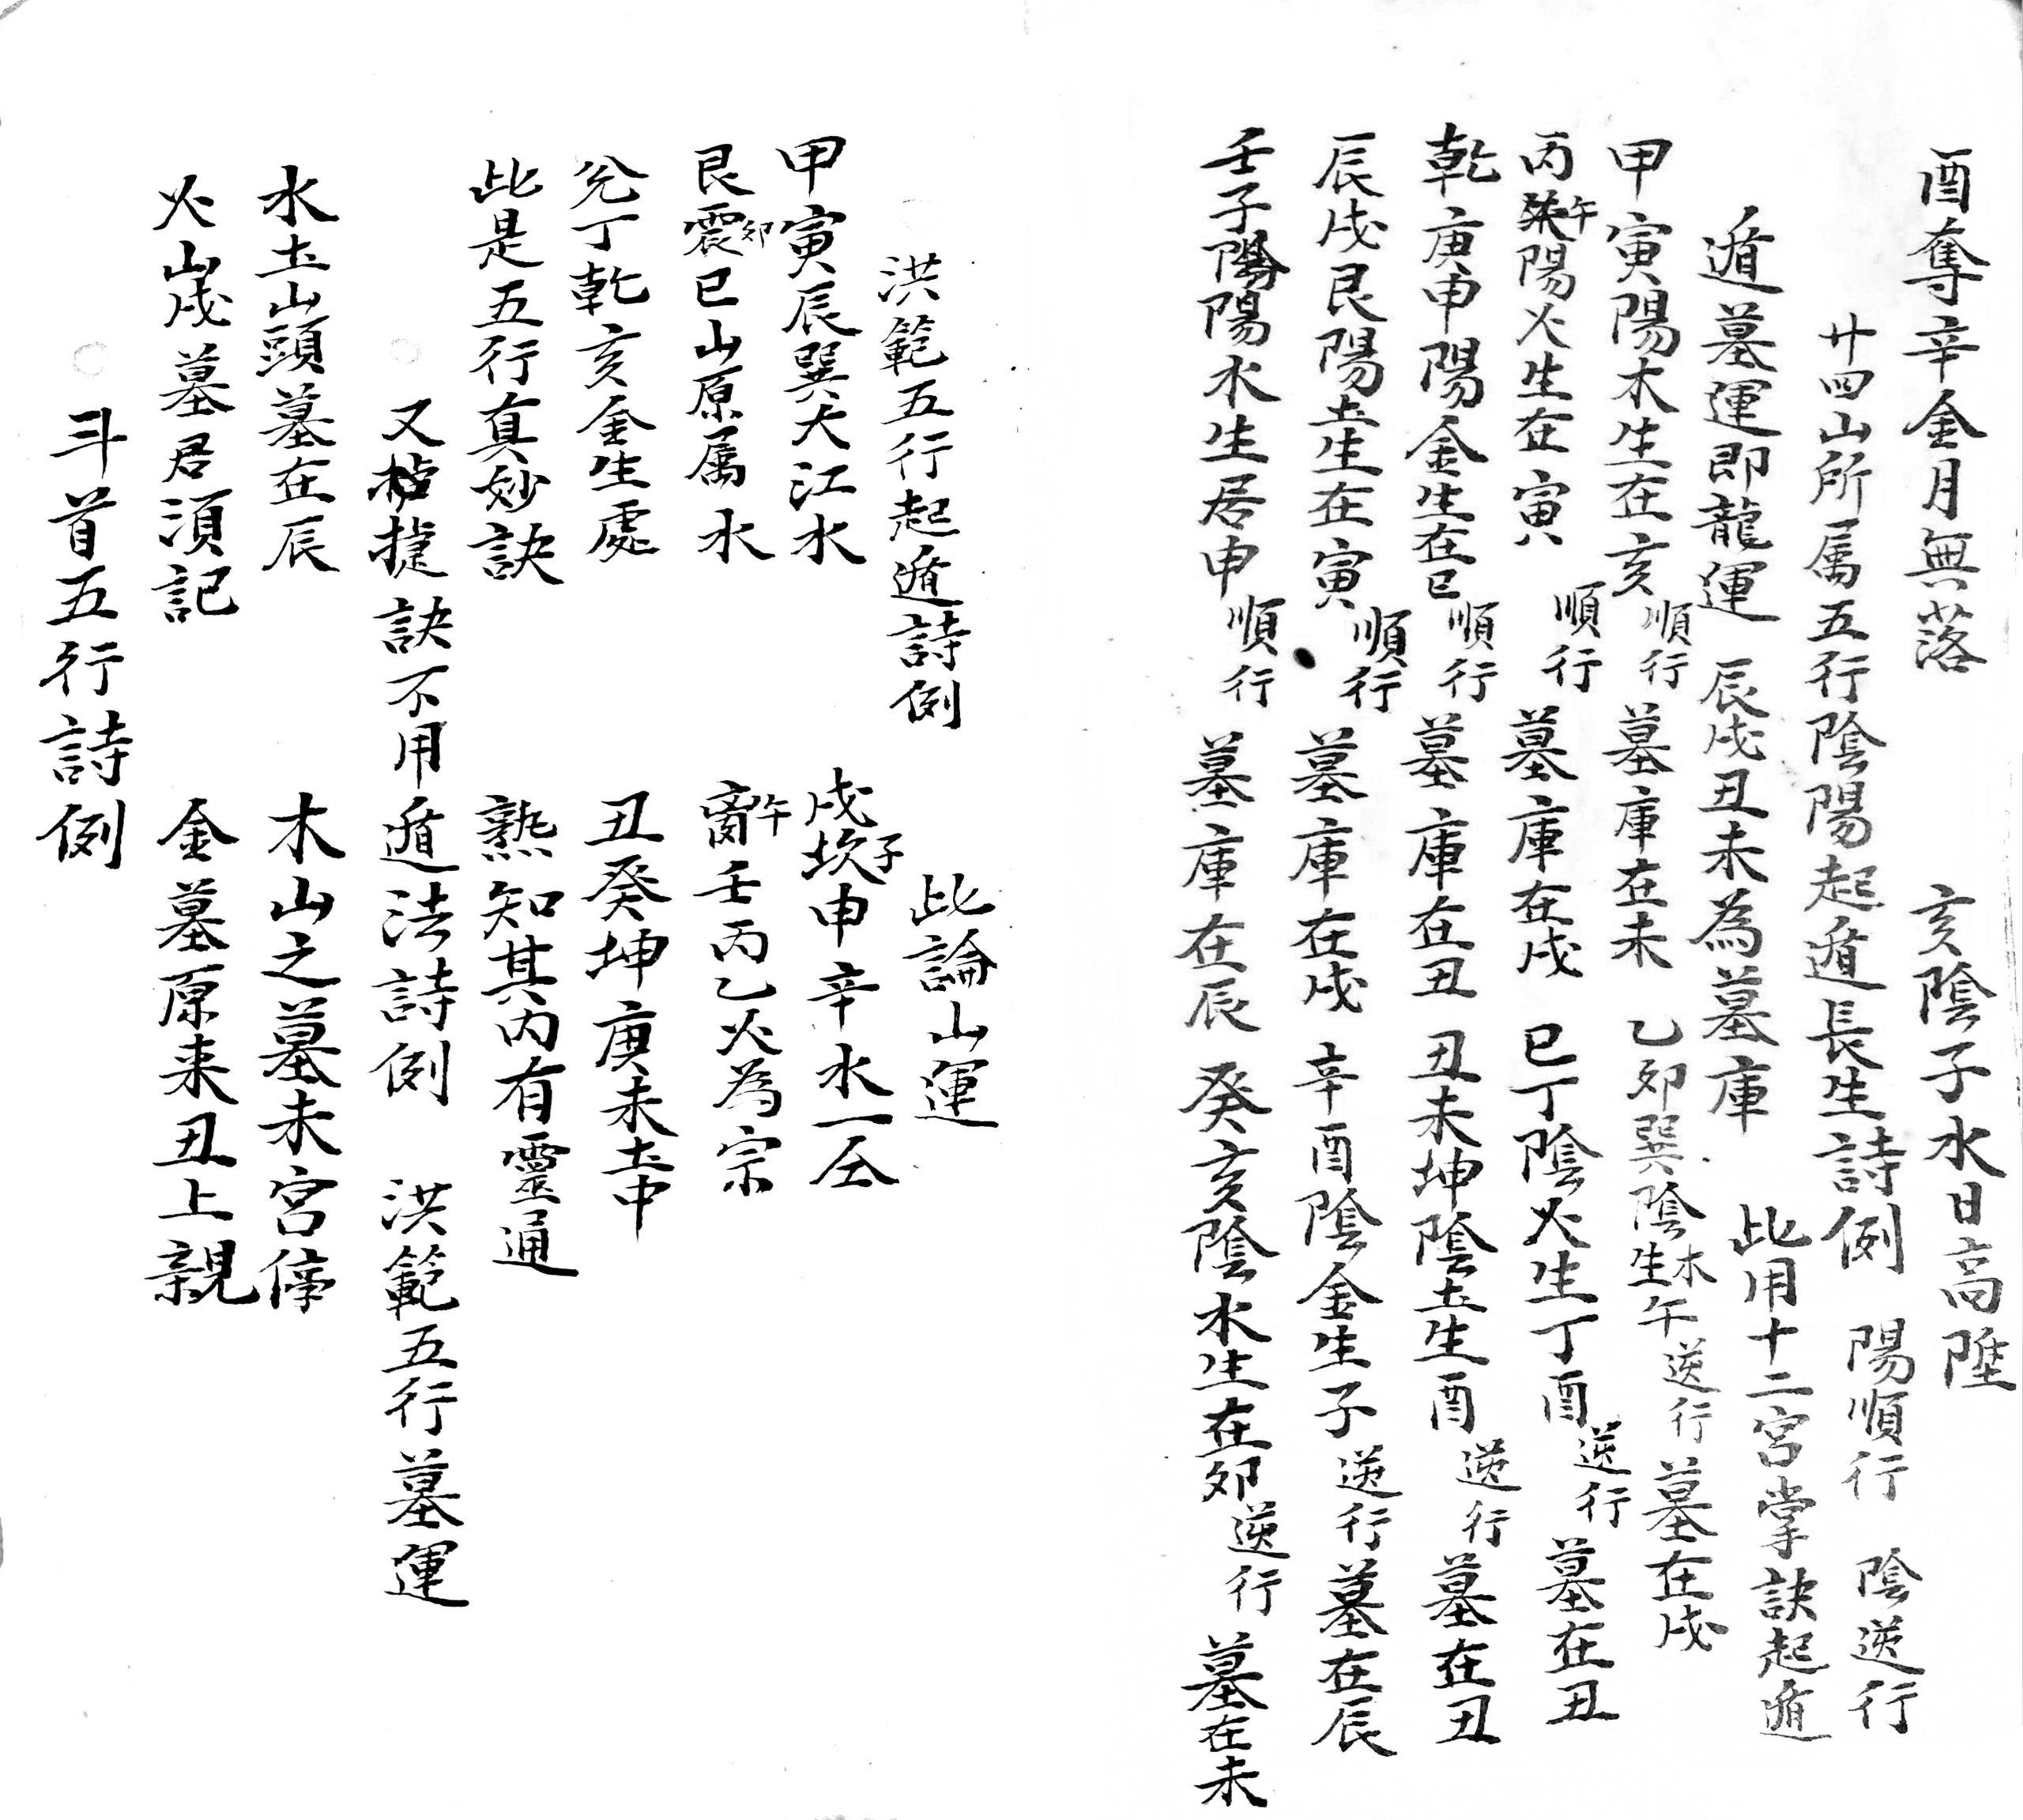 酉奪辛金月無落　亥陰子水日高陞
廿四山所属五行陰陽起遁長生詩例　陽順行　陰逆行
遁墓運即龍運　辰戌丑未為墓庫　此用十二宮掌訣起遁
甲寅陽木生在亥順行　墓庫在未　乙卯巽陰木生午逆行墓在戌
丙午陽火生在寅順行　墓庫在戌　巳丁陰火生丁酉逆行墓在丑
乾庚申陽金生在巳順行　墓庫在丑　丑未坤陰土生酉逆行墓在丑
辰戌艮陽土生在寅順行　墓庫在戌　辛酉陰金生子逆行墓在辰
壬子陽陽水生居申順行　墓庫在辰　癸亥陰水生在卯逆行墓在未
洪範五行起遁詩例　此論山運
甲寅辰巽大江水　戌坎子申辛水一仝
艮震卯巳山原属水　离午壬丙乙火為宗
兌丁乾亥金生處　丑癸坤庚未土中
此是五行真妙訣　熟知其內有靈通
又捷訣不用遁法詩例　洪範五行墓運
水土山頭墓在辰　木山之墓未宮停
火山戌墓君須記　金墓原来丑上親
斗首五行詩例